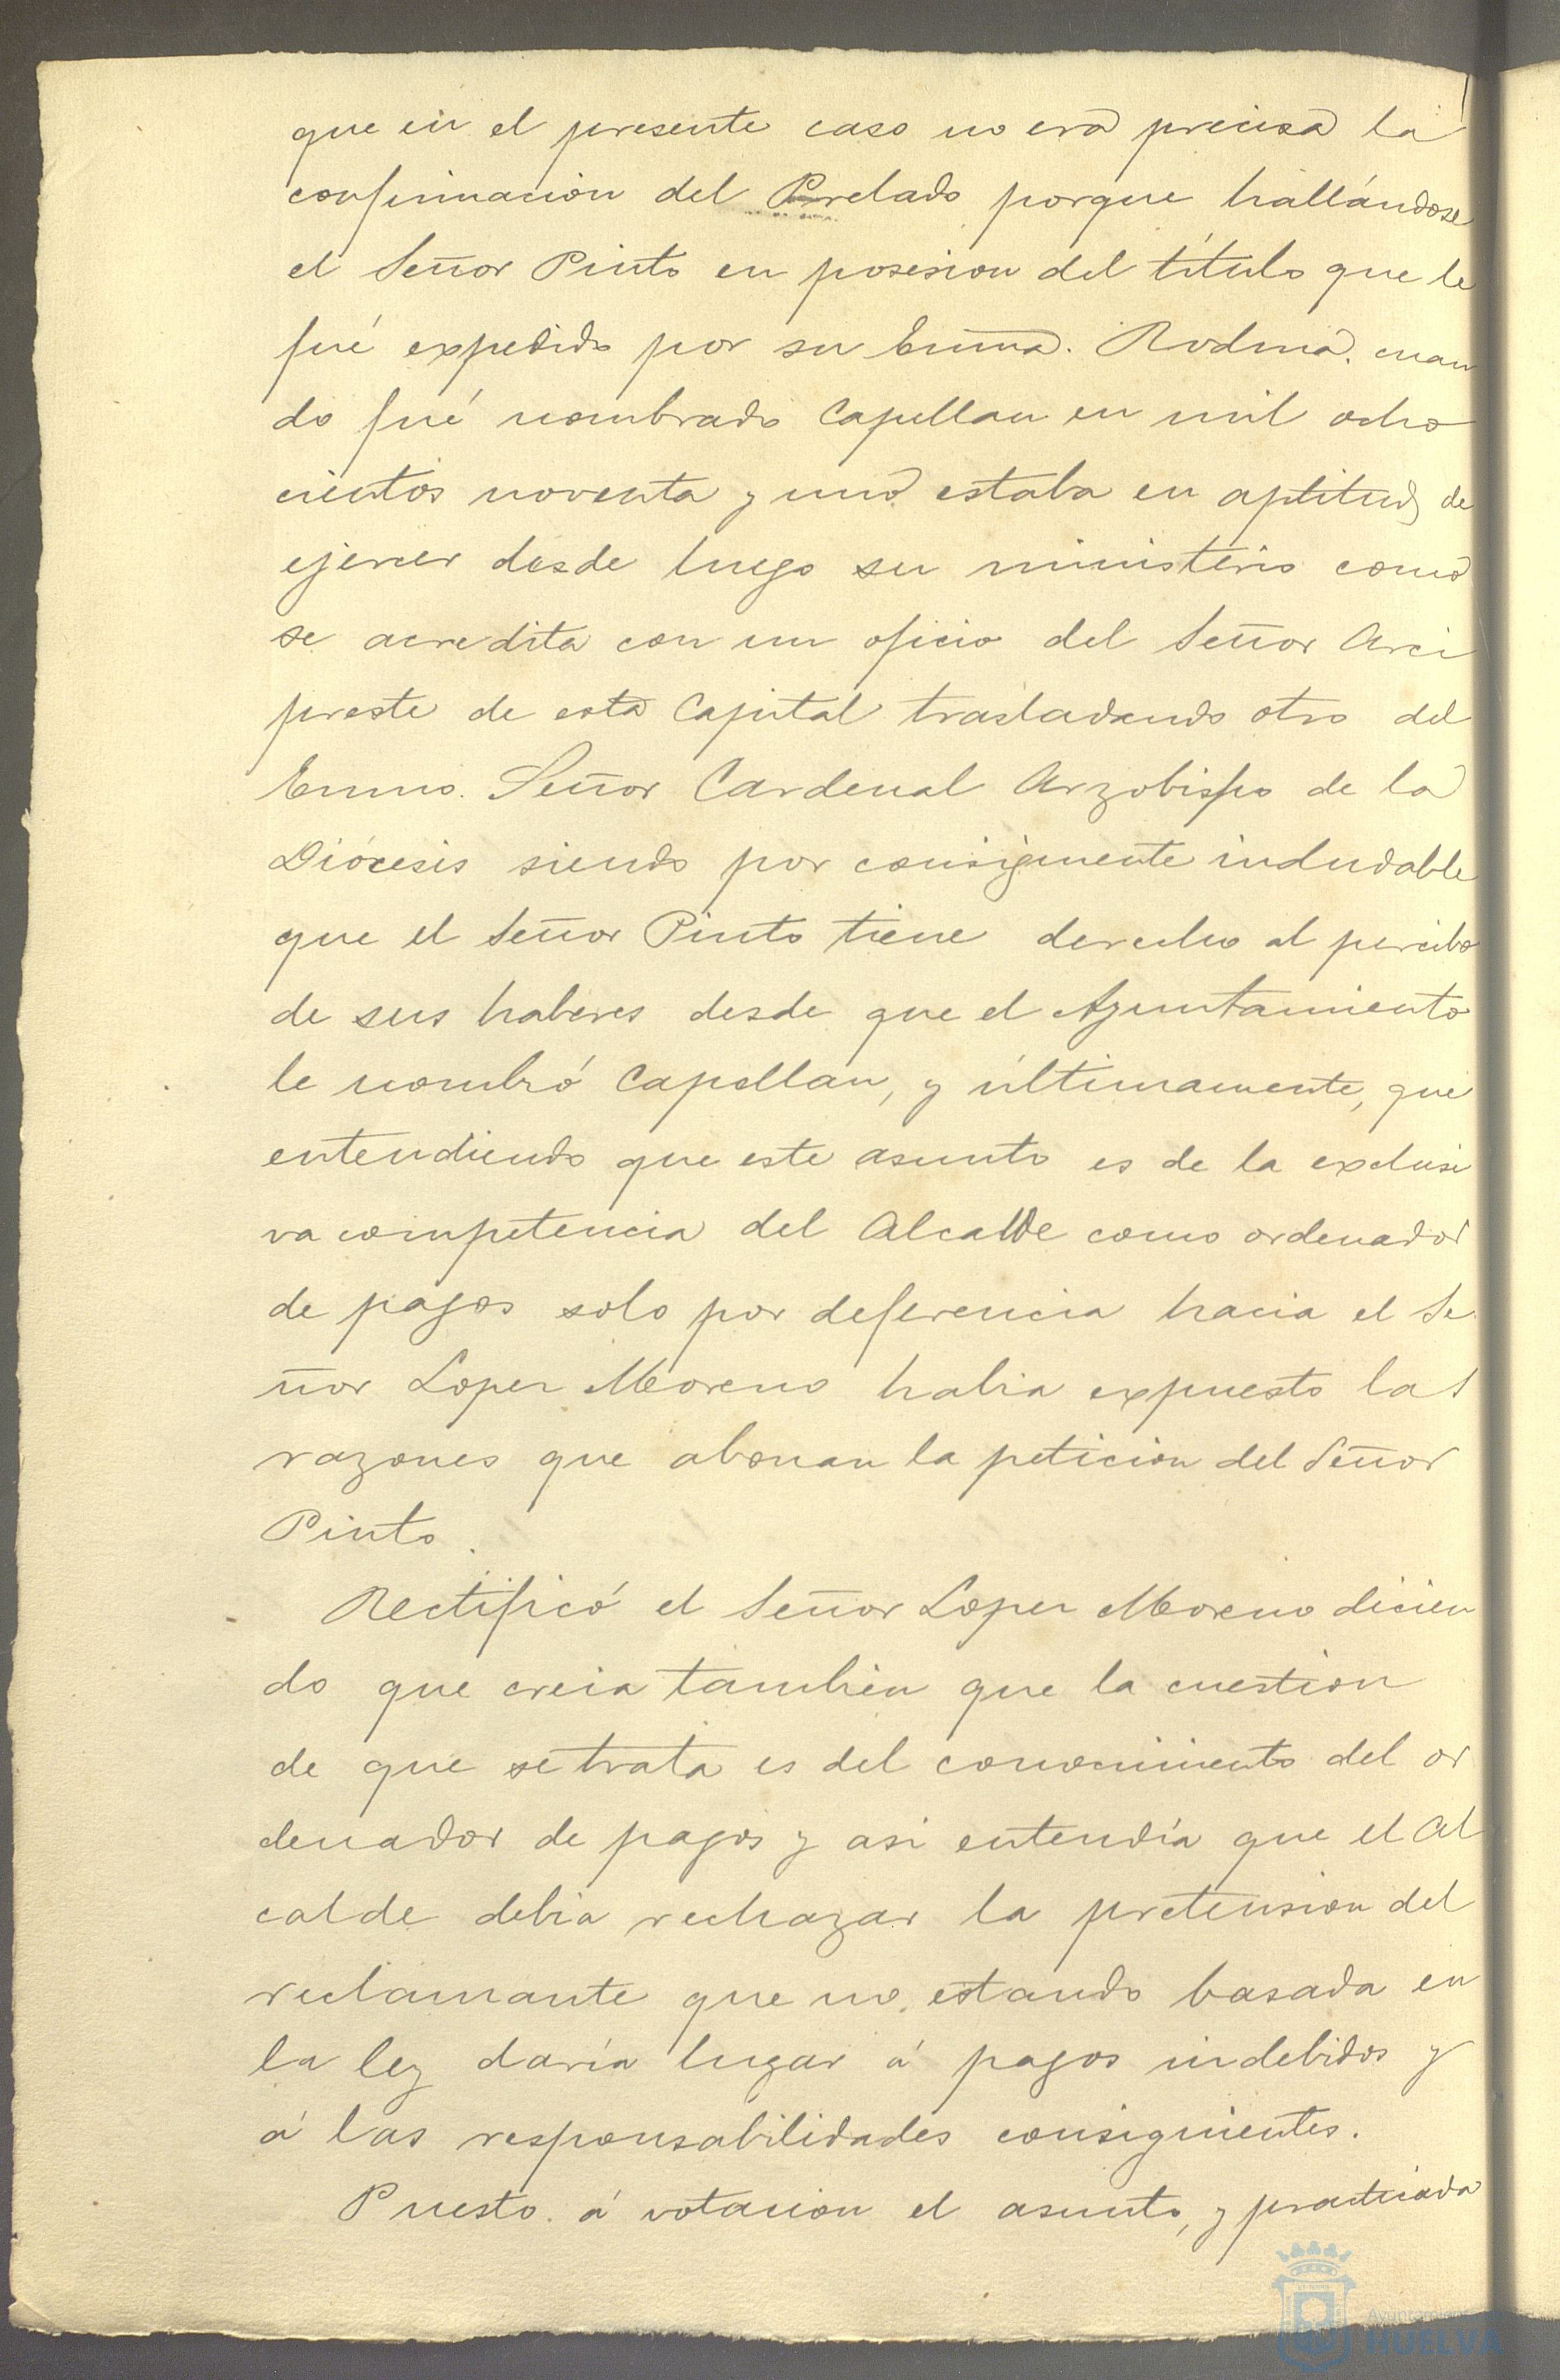 que en el presente caso no era precisa la
confirmacion del Prelado porque hallándose
el Señor Pinto en posesion del título que le
fué expedido por su Emma. Rvdma. cuan
do fué nombrado Capellan en mil ocho
cientos noventa y uno estaba en aptitud de
ejercer desde luego su ministerio como
se acredita con un oficio del Señor Arci
preste de esta Capital trasladando otro del
Emmo. Señor Cardenal Arzobispo de la
Diócesis siendo por consiguiente indudable
que el Señor Pinto tiene derecho al percibo
de sus haberes desde que el Ayuntamiento
le nombró Capellan, y últimamente, que
entendiendo que este asunto es de la exclusi
va competencia del Alcalde como ordenador
de pagos solo por deferencia hacia el Se
ñor Lopez Moreno habia expuesto las
razones que abonan la peticion del Señor
Pinto.
Rectificó el Señor Lopez Moreno dicien
do que creia tambien que la cuestion
de que se trata es del conocimiento del or
denador de pagos y asi entendía que el Al
calde debia rechazar la pretension del
reclamante que no estando basada en
la ley daría lugar á pagos indebidos y
á las responsabilidades consiguientes.
Puesto á votacion el asunto, y practicada
Ayuntamiento
HUELVA